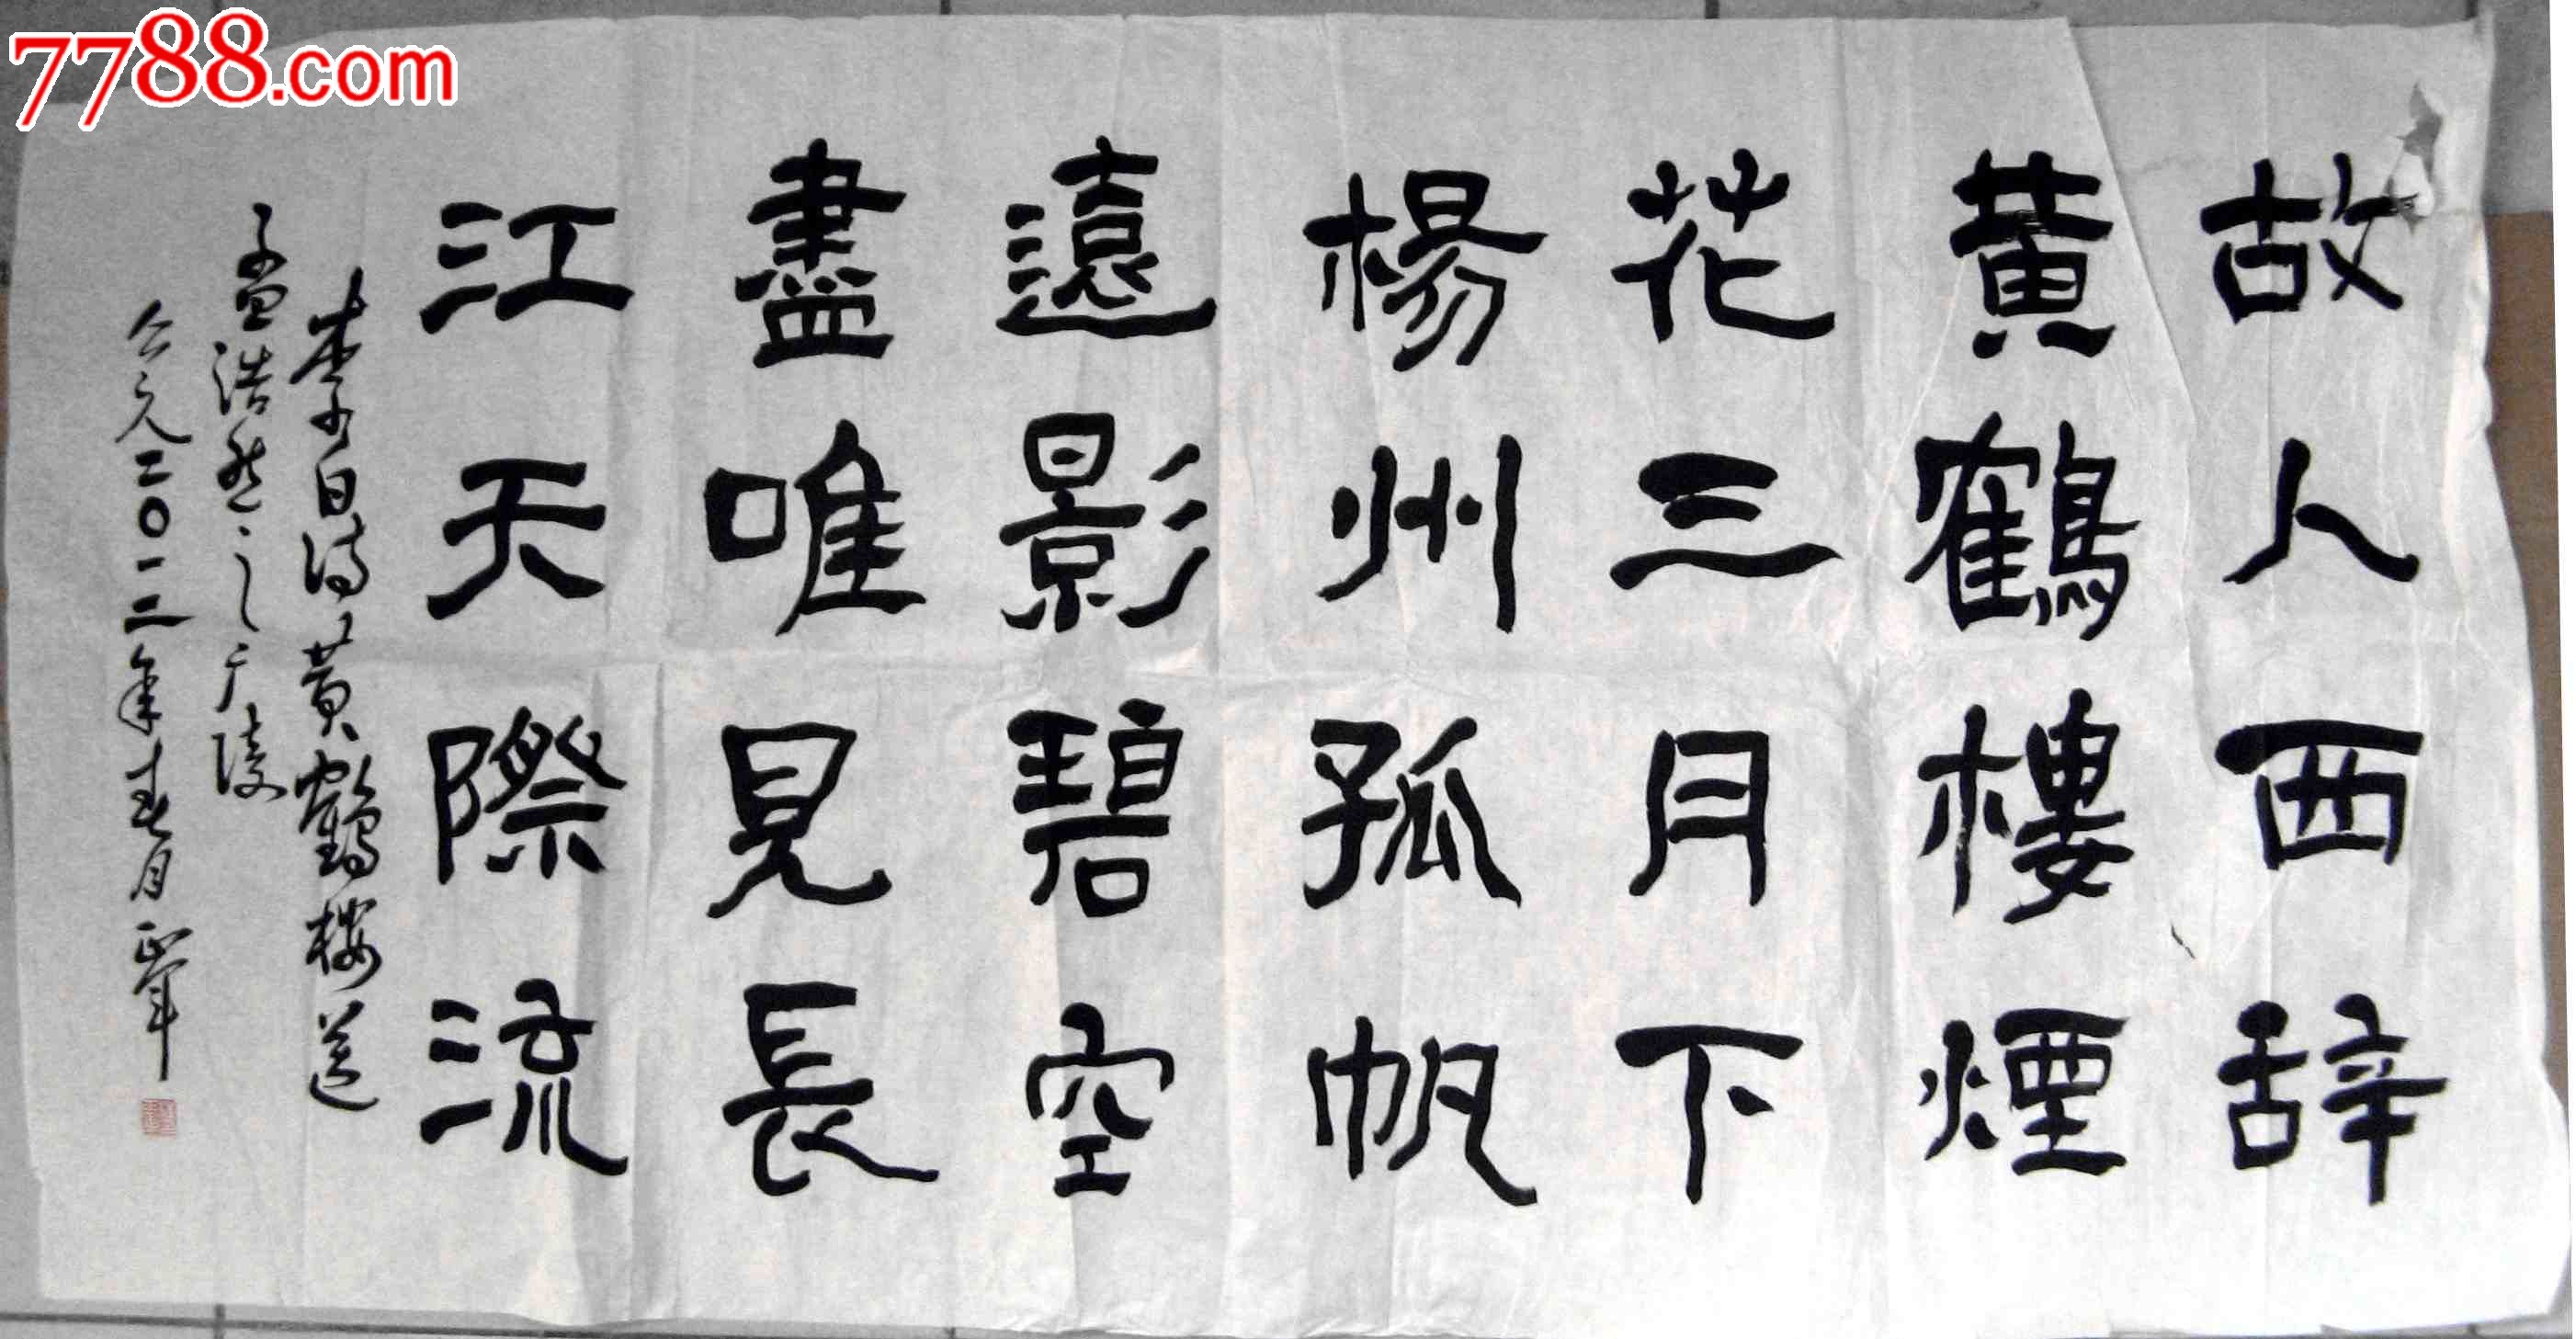 故人西辞
黄鶴樓煙
花三月下
楊州孤帆
遠影碧空
盡唯見長
江天際流
李白诗黄鶴楼送
孟浩然之广陵
公元二0一二年春月
7788.com